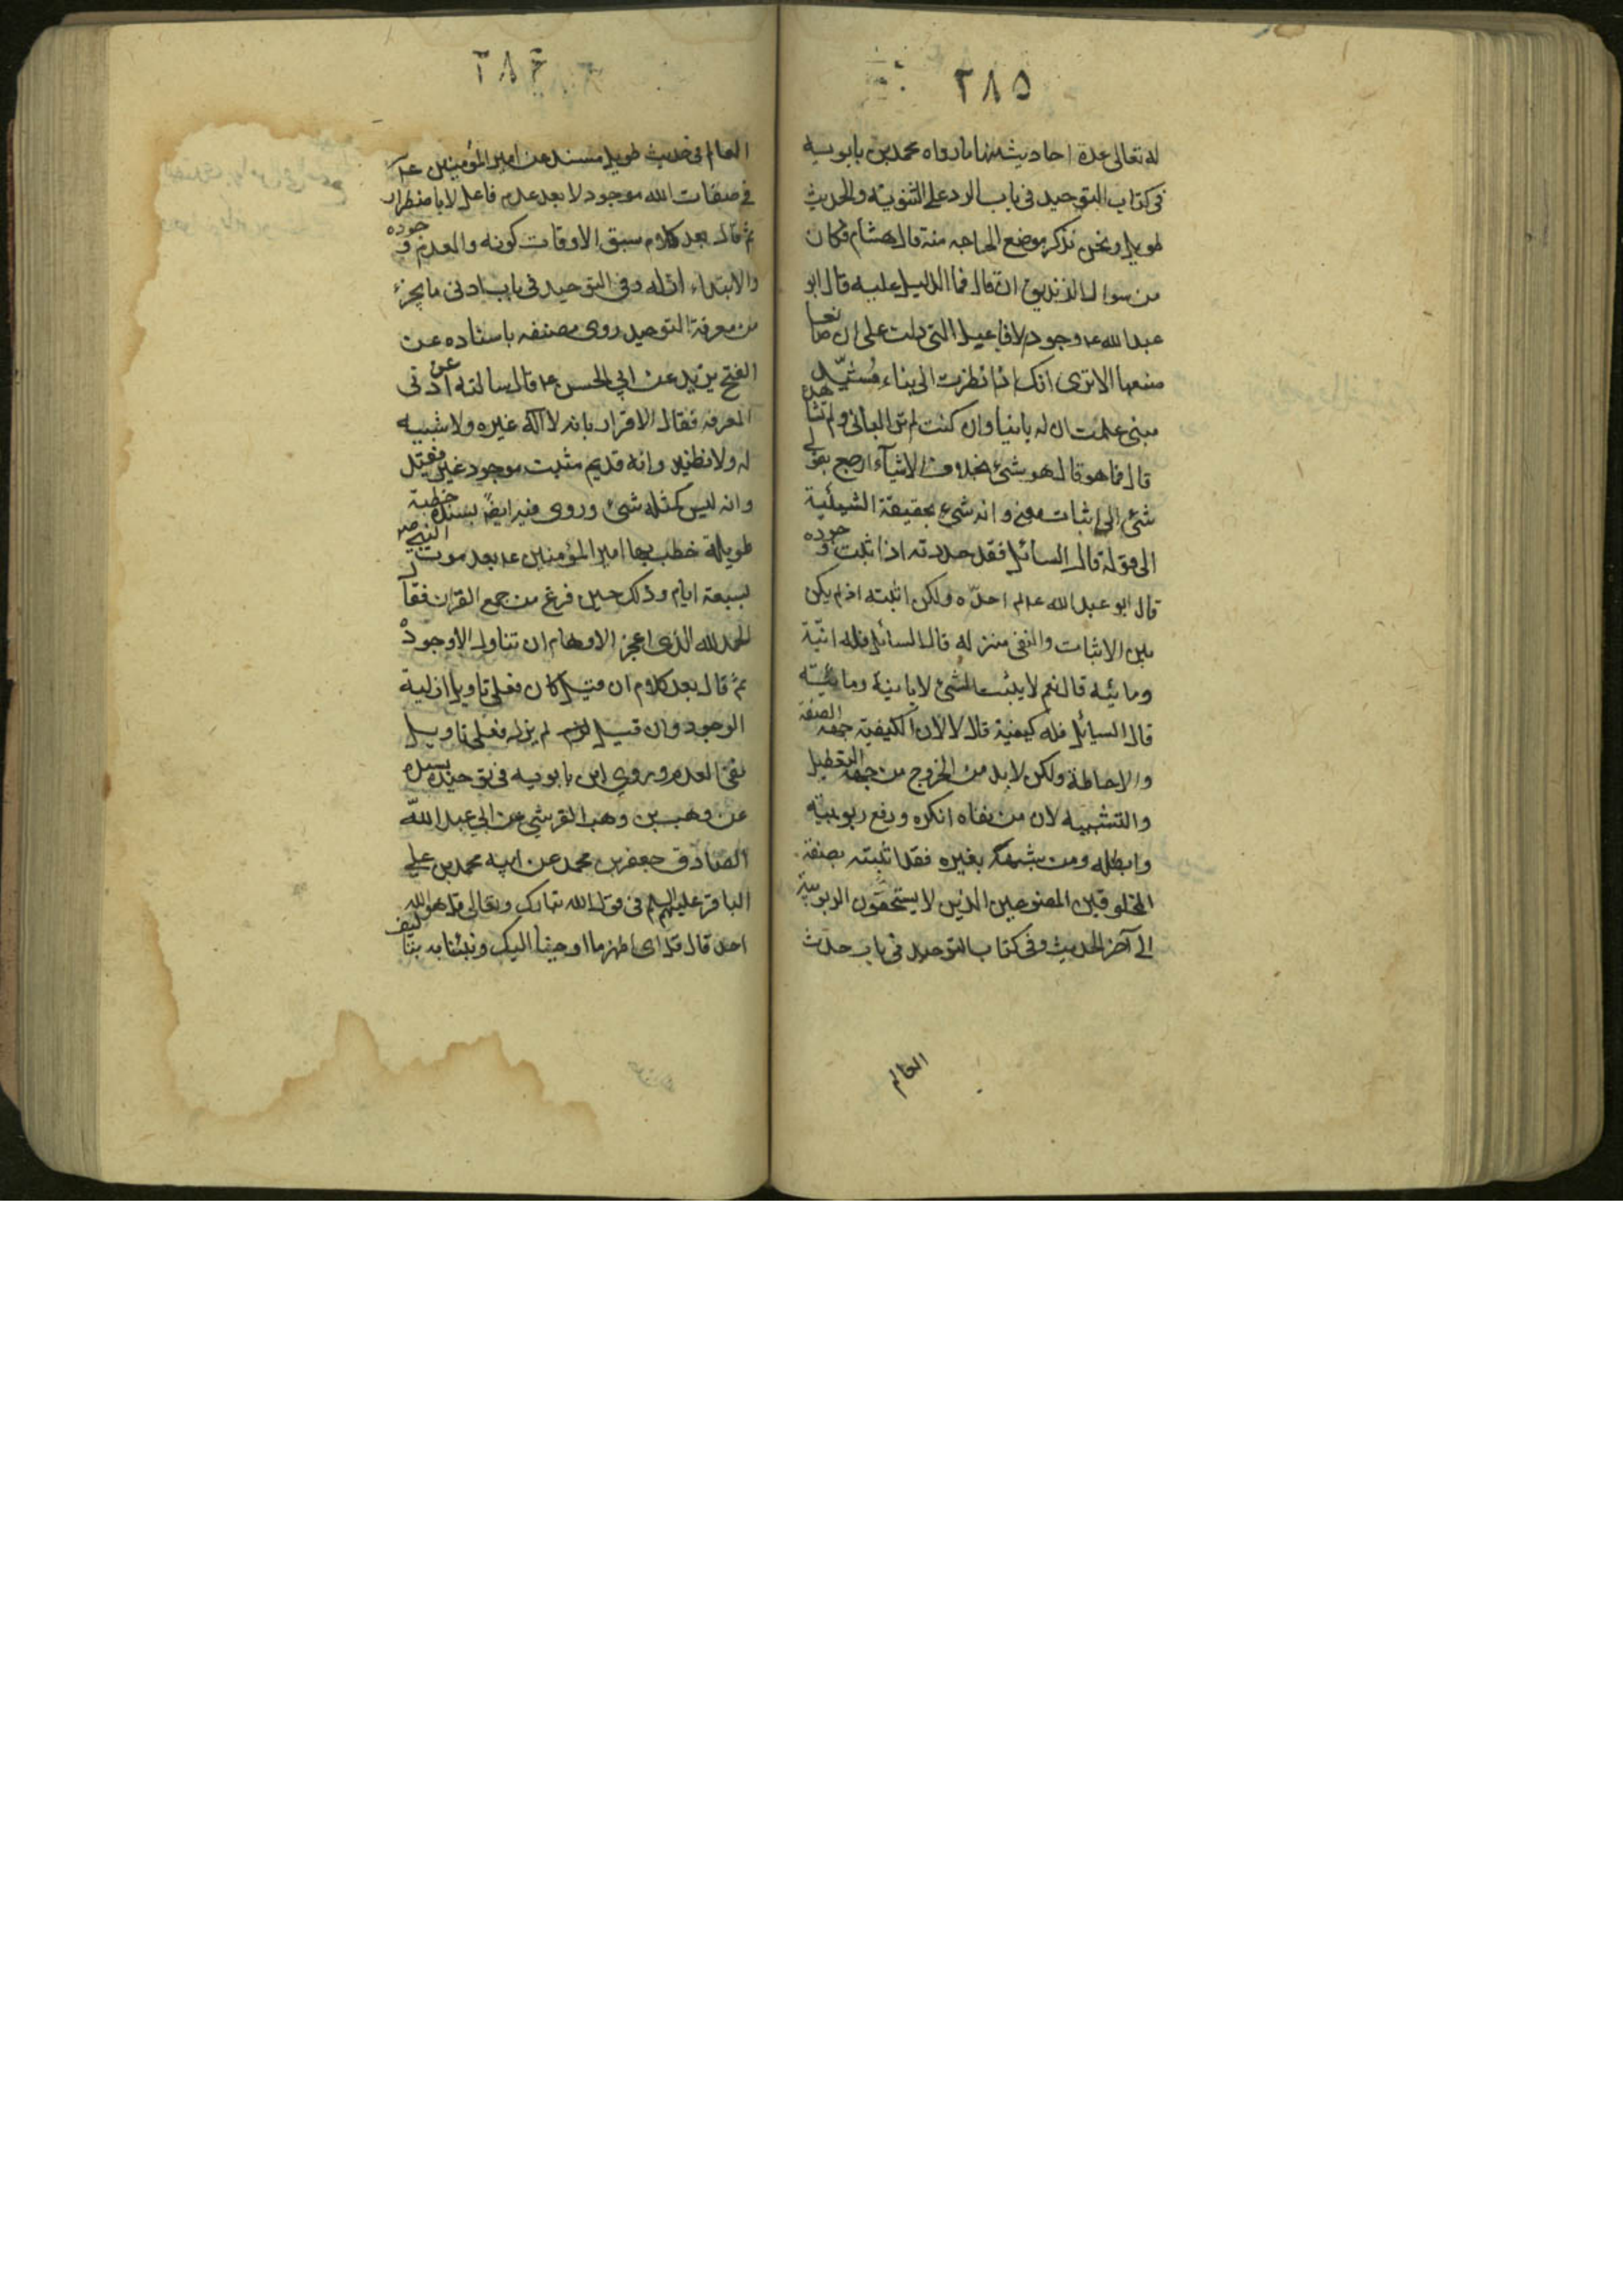 ٢٨٥
له تعالى عدة احاديث منها ما رواه محمد بن بابويه
فى كتاب التوحيد فى باب الرد على الثنوية والحديث
طويل ونحن نذكر موضع الحاجه منه قال هشام فكان
من سوال الزنديق ان قال فما الدليل عليه قال ابو
عبد الله عـ وجود الافاعيل التى دلت على ان صانعا
صنعها الا ترى انك اذا نظرت الى بناء مُشَيَّد
مبنى علمت ان له بانيا وان كنت لم تر البانى ولم تشاهده
قال فما هو قال هو شئ بخلاف الاشيآء ارجع بقولى
شئ الى اثبات معنى وانه شئ بحقيقة الشيئية
الى قوله قال السائل فقد حددته اذا ثبت وجوده
قال ابو عبد الله عـ لم احدّه ولكن اثبته اذ لم يكن
بين الاثبات والنفى منزله قال السائل فله انّية
ومائيه قال نعم لا يثبت الشئ الا بانية ومائيته
قال السائل فله كيفية قال لا لان الكيفية جهة الصفة
والاحاطة ولكن لابد من الخروج من جهة التعطيل
والتشبيه لان من نفاه انكره ورفع ربوبيته
وابطله ومن شبهه بغيره فقد اثبته بصفة
المخلوقين المصنوعين الذين لا يستحقون الربوبية
الى آخر الحديث وفى كتاب التوحيد فى باب حدث
العالم
٢٨٦
العالم فى حديث طويل مسند عن امير المؤمنين عـ
فى صفات الله موجود لا بعد عدم فاعل لا باضطرار
ثم قال بعد كلام سبق الاوقات كونه والعدم وجوده
والابتداء ازله وفى التوحيد فى باب ادنى ما يجزء
من معرفة التوحيد روى مصنفه باسناده عن
الفتح بن يزيد عن ابى الحسن عـ قال سالته عن ادنى
المعرفه فقال الاقرار بانه لا اله غيره ولا شبيه
له ولا نظير وانه قديم مثبت موجود غير فقيد
وانه ليس كمثله شئ وروى فيه ايضا بسنده خطبة
طويلة خطب بها امير المؤمنين عـ بعد موت النبى ص
بسبعة ايام وذلك حين فرغ من جمع القران فقال
الحمد لله الذى اعجز الاوهام ان تنال الا وجوده
ثم قال بعد كلام ان قيل كان فعلى تاويل ازلية
الوجود وان قيل لم يزل فعلى تاويل
نفى العدم وروى ابن بابويه فى توحيده بسنده
عن وهب بن وهب القرشى عن ابى عبد الله
الصادق جعفر بن محمد عن ابيه محمد بن على
الباقر عليهم السلم فى قول الله تبارك وتعالى قل هو الله
احد قال قل اى اظهر ما اوحينا اليك ونبئنا به بتاليف